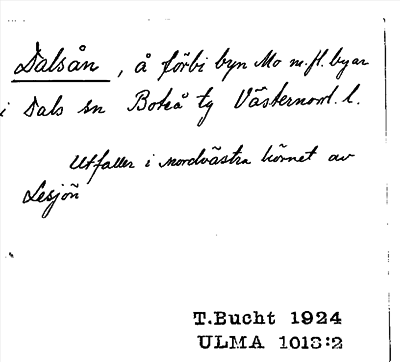 Dalsån, å förbi byn Mo m.fl. byar
i Dals sn Boteå tg Västernorrl. l.
Utfaller i nordvästra hörnet av
Lesjön
T.Bucht 1924
ULMA 1013:2